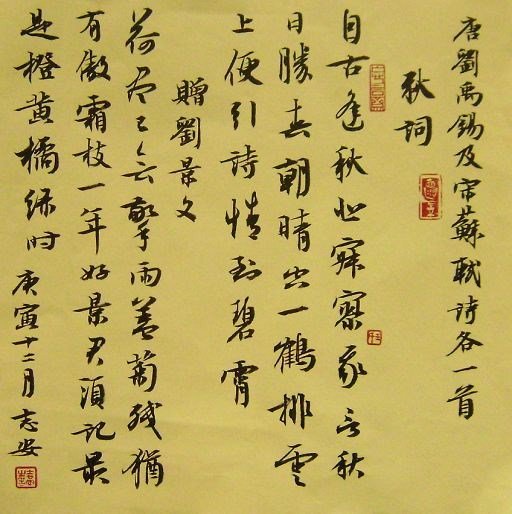 唐劉禹錫及宋蘇軾詩各一首
秋詞
自古逢秋悲寂寥我言秋
日勝春朝晴空一鶴排雲
上便引詩情到碧霄
贈劉景文
荷尽已无擎雨蓋菊殘猶
有傲霜枝一年好景君須記最
是橙黄橘綠时
庚寅十二月志安